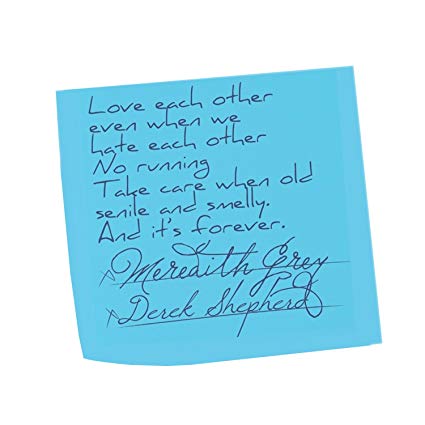 Love each other
even when we
hate each other
No running
Take care when old
senile and smelly.
And it's forever.
x Meredith Grey
x Derek Shepherd